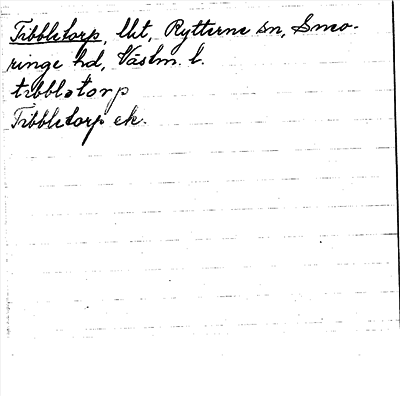 Tibbletorp, lht, Rytterne sn, Snev-
ringe hd, Västm. l.
tıbblətorp
Tibbletorp ek.